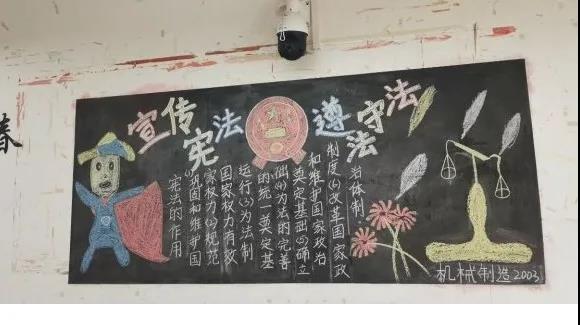 春
宣传宪法
遵法守法
宪法的作用
(1)巩固和维护国
家权力(2)规范
国家权力有效
运行(3)为法制
的统一奠定基
础(4)为法的完善
奠定基础(5)确立
和维护国家政治
制度(6)改革国家政
治体制
机械制造2003